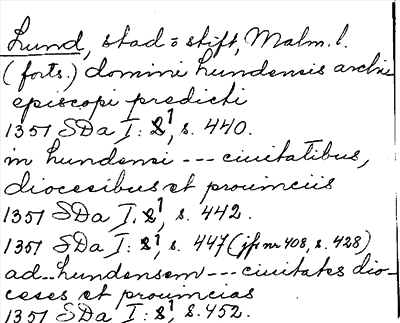 Lund, stad o stift, Malm. l.
(forts.) domini Lundensis archi
episcopi predicti
1351 SDa I: 1, s. 440.
in Lundensi --- ciuitatibus,
diocesibus et prouinciis
1351 SDa I, 1, s. 442.
1351 SDa I: 1, s. 447 (jfr nr 408, s. 428)
ad Lundensem --- ciuitates dio-
ceses et prouincias
1351 SDa I: 1, s. 452.